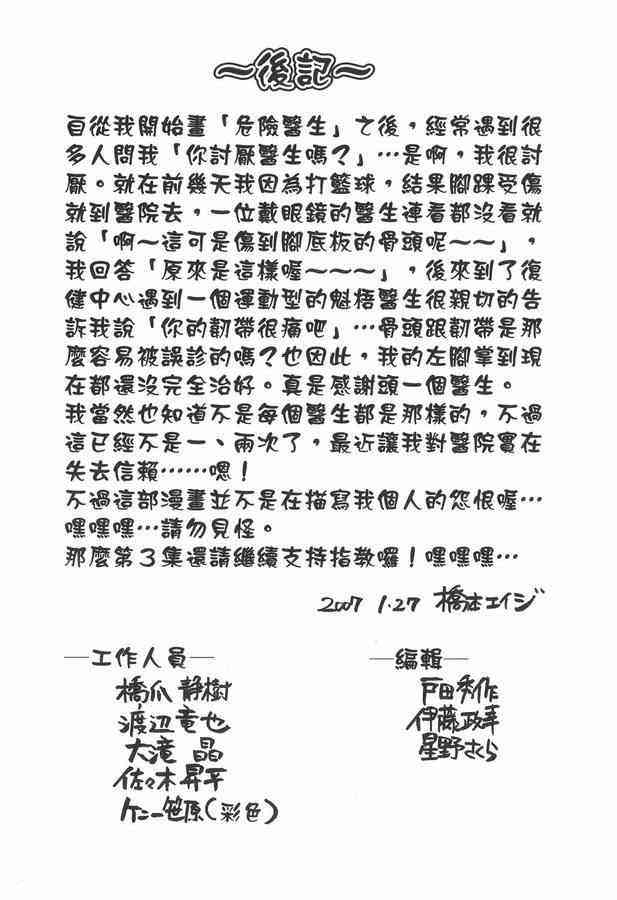 ～後記～
自從我開始畫「危險醫生」之後，經常遇到很
多人問我「你討厭醫生嗎？」…是啊，我很討
厭。就在前幾天我因為打籃球，結果腳踝受傷
就到醫院去，一位戴眼鏡的醫生連看都沒看就
說「啊～這可是傷到腳底板的骨頭呢～～」，
我回答「原來是這樣喔～～～」，後來到了復
健中心遇到一個運動型的魁梧醫生很親切的告
訴我說「你的韌帶很痛吧」…骨頭跟韌帶是那
麼容易被誤診的嗎？也因此，我的左腳掌到現
在都還沒完全治好。真是感謝頭一個醫生。
我當然也知道不是每個醫生都是那樣的，不過
這已經不是一、兩次了，最近讓我對醫院實在
失去信賴……嗯！
不過這部漫畫並不是在描寫我個人的怨恨喔…
嘿嘿嘿…請勿見怪。
那麼第3集還請繼續支持指教囉！嘿嘿嘿…
2007 1.27 橋本エイジ
—工作人員—
橋爪 静樹
渡辺竜也
大滝 晶
佐々木昇平
ケニー笹原(彩色)
—編輯—
戸田秀作
伊藤政幸
星野さくら